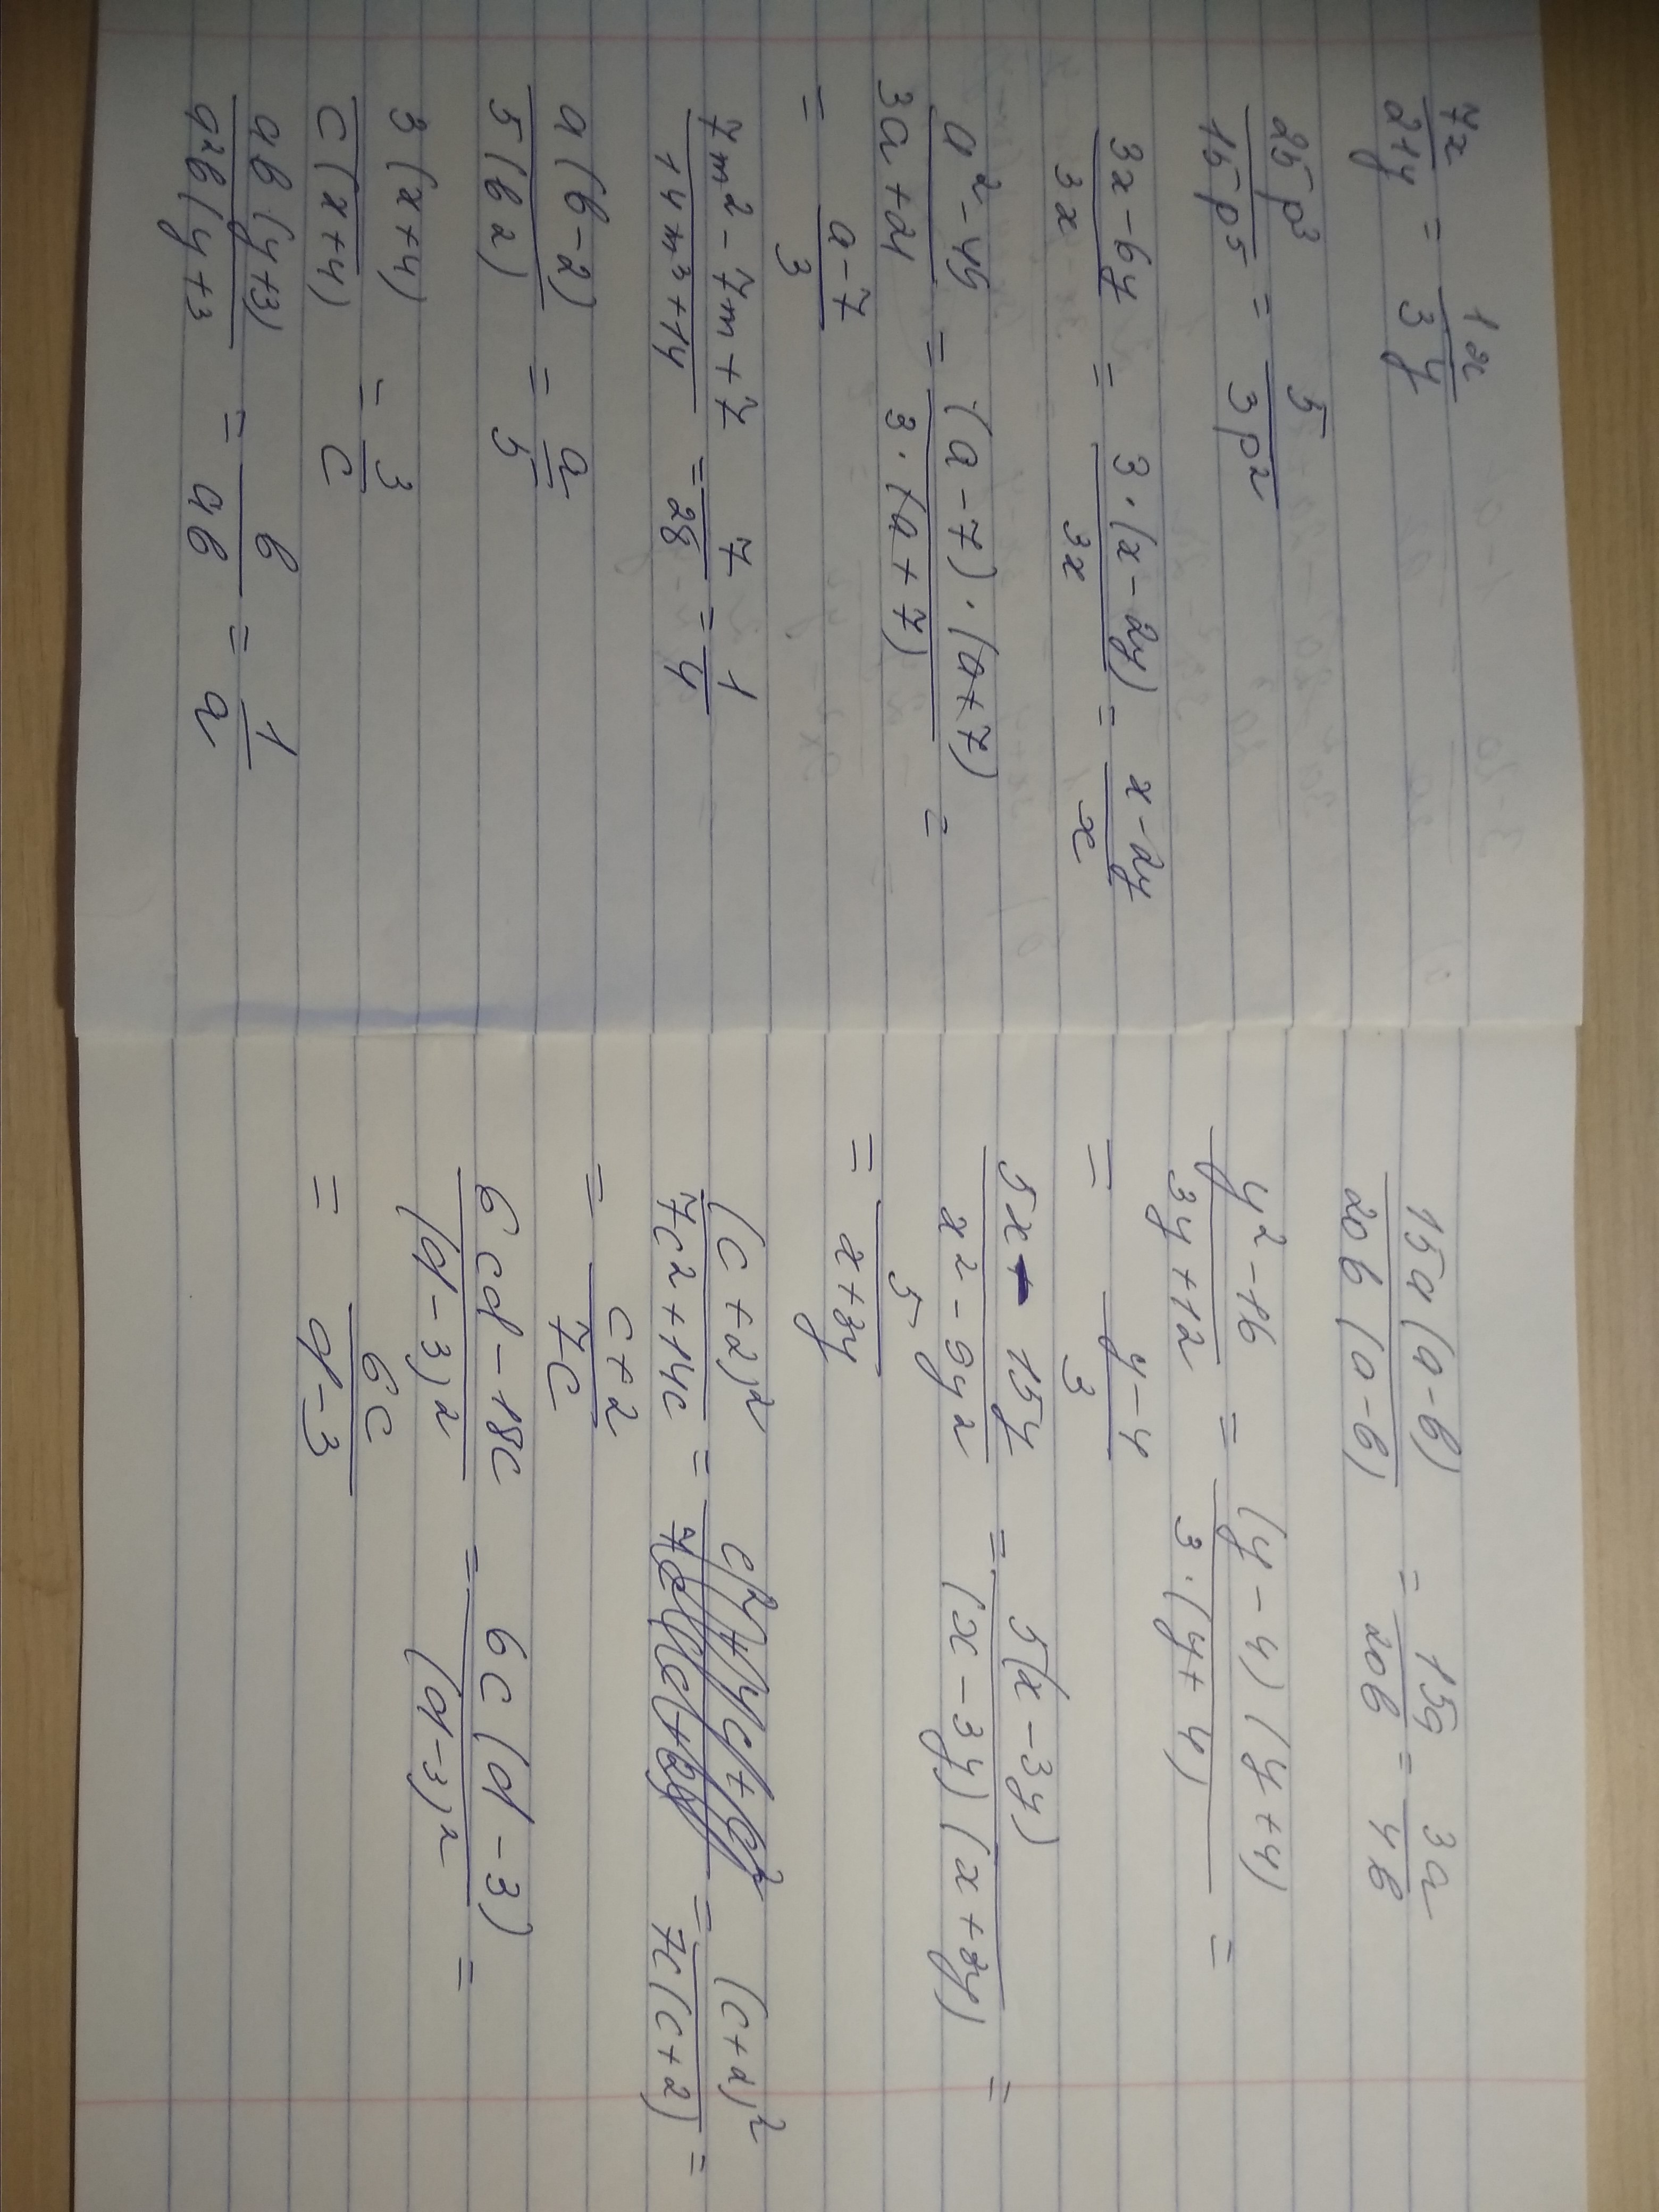 7x/21y = 1x/3y
25p³/15p⁵ = 5/3p²
3x-6y/3x = 3·(x-2y)/3x = x-2y/x
a²-49/3a+21 = (a-7)·(a+7)/3·(a+7) =
= a-7/3
7m²-7m+7/14m³+14 = 7/28 = 1/4
a(в-2)/5(в2) = a/5
3(x+4)/c(x+4) = 3/c
aв·(y+3)/a²в(y+3 = в/aв = 1/a
15a(a-в)/20в(a-в) = 15a/20в = 3a/4в
y²-16/3y+12 = (y-4)(y+4)/3·(y+4) =
= y-4/3
5x-15y/x²-9y² = 5(x-3y)/(x-3y)(x+3y) =
= 5/x+3y
(c+2)²/7c²+14c = = (c+2)²/7c(c+2) =
= c+2/7c
6cd-18c/(d-3)² = 6c(d-3)/(d-3)² =
= 6c/d-3